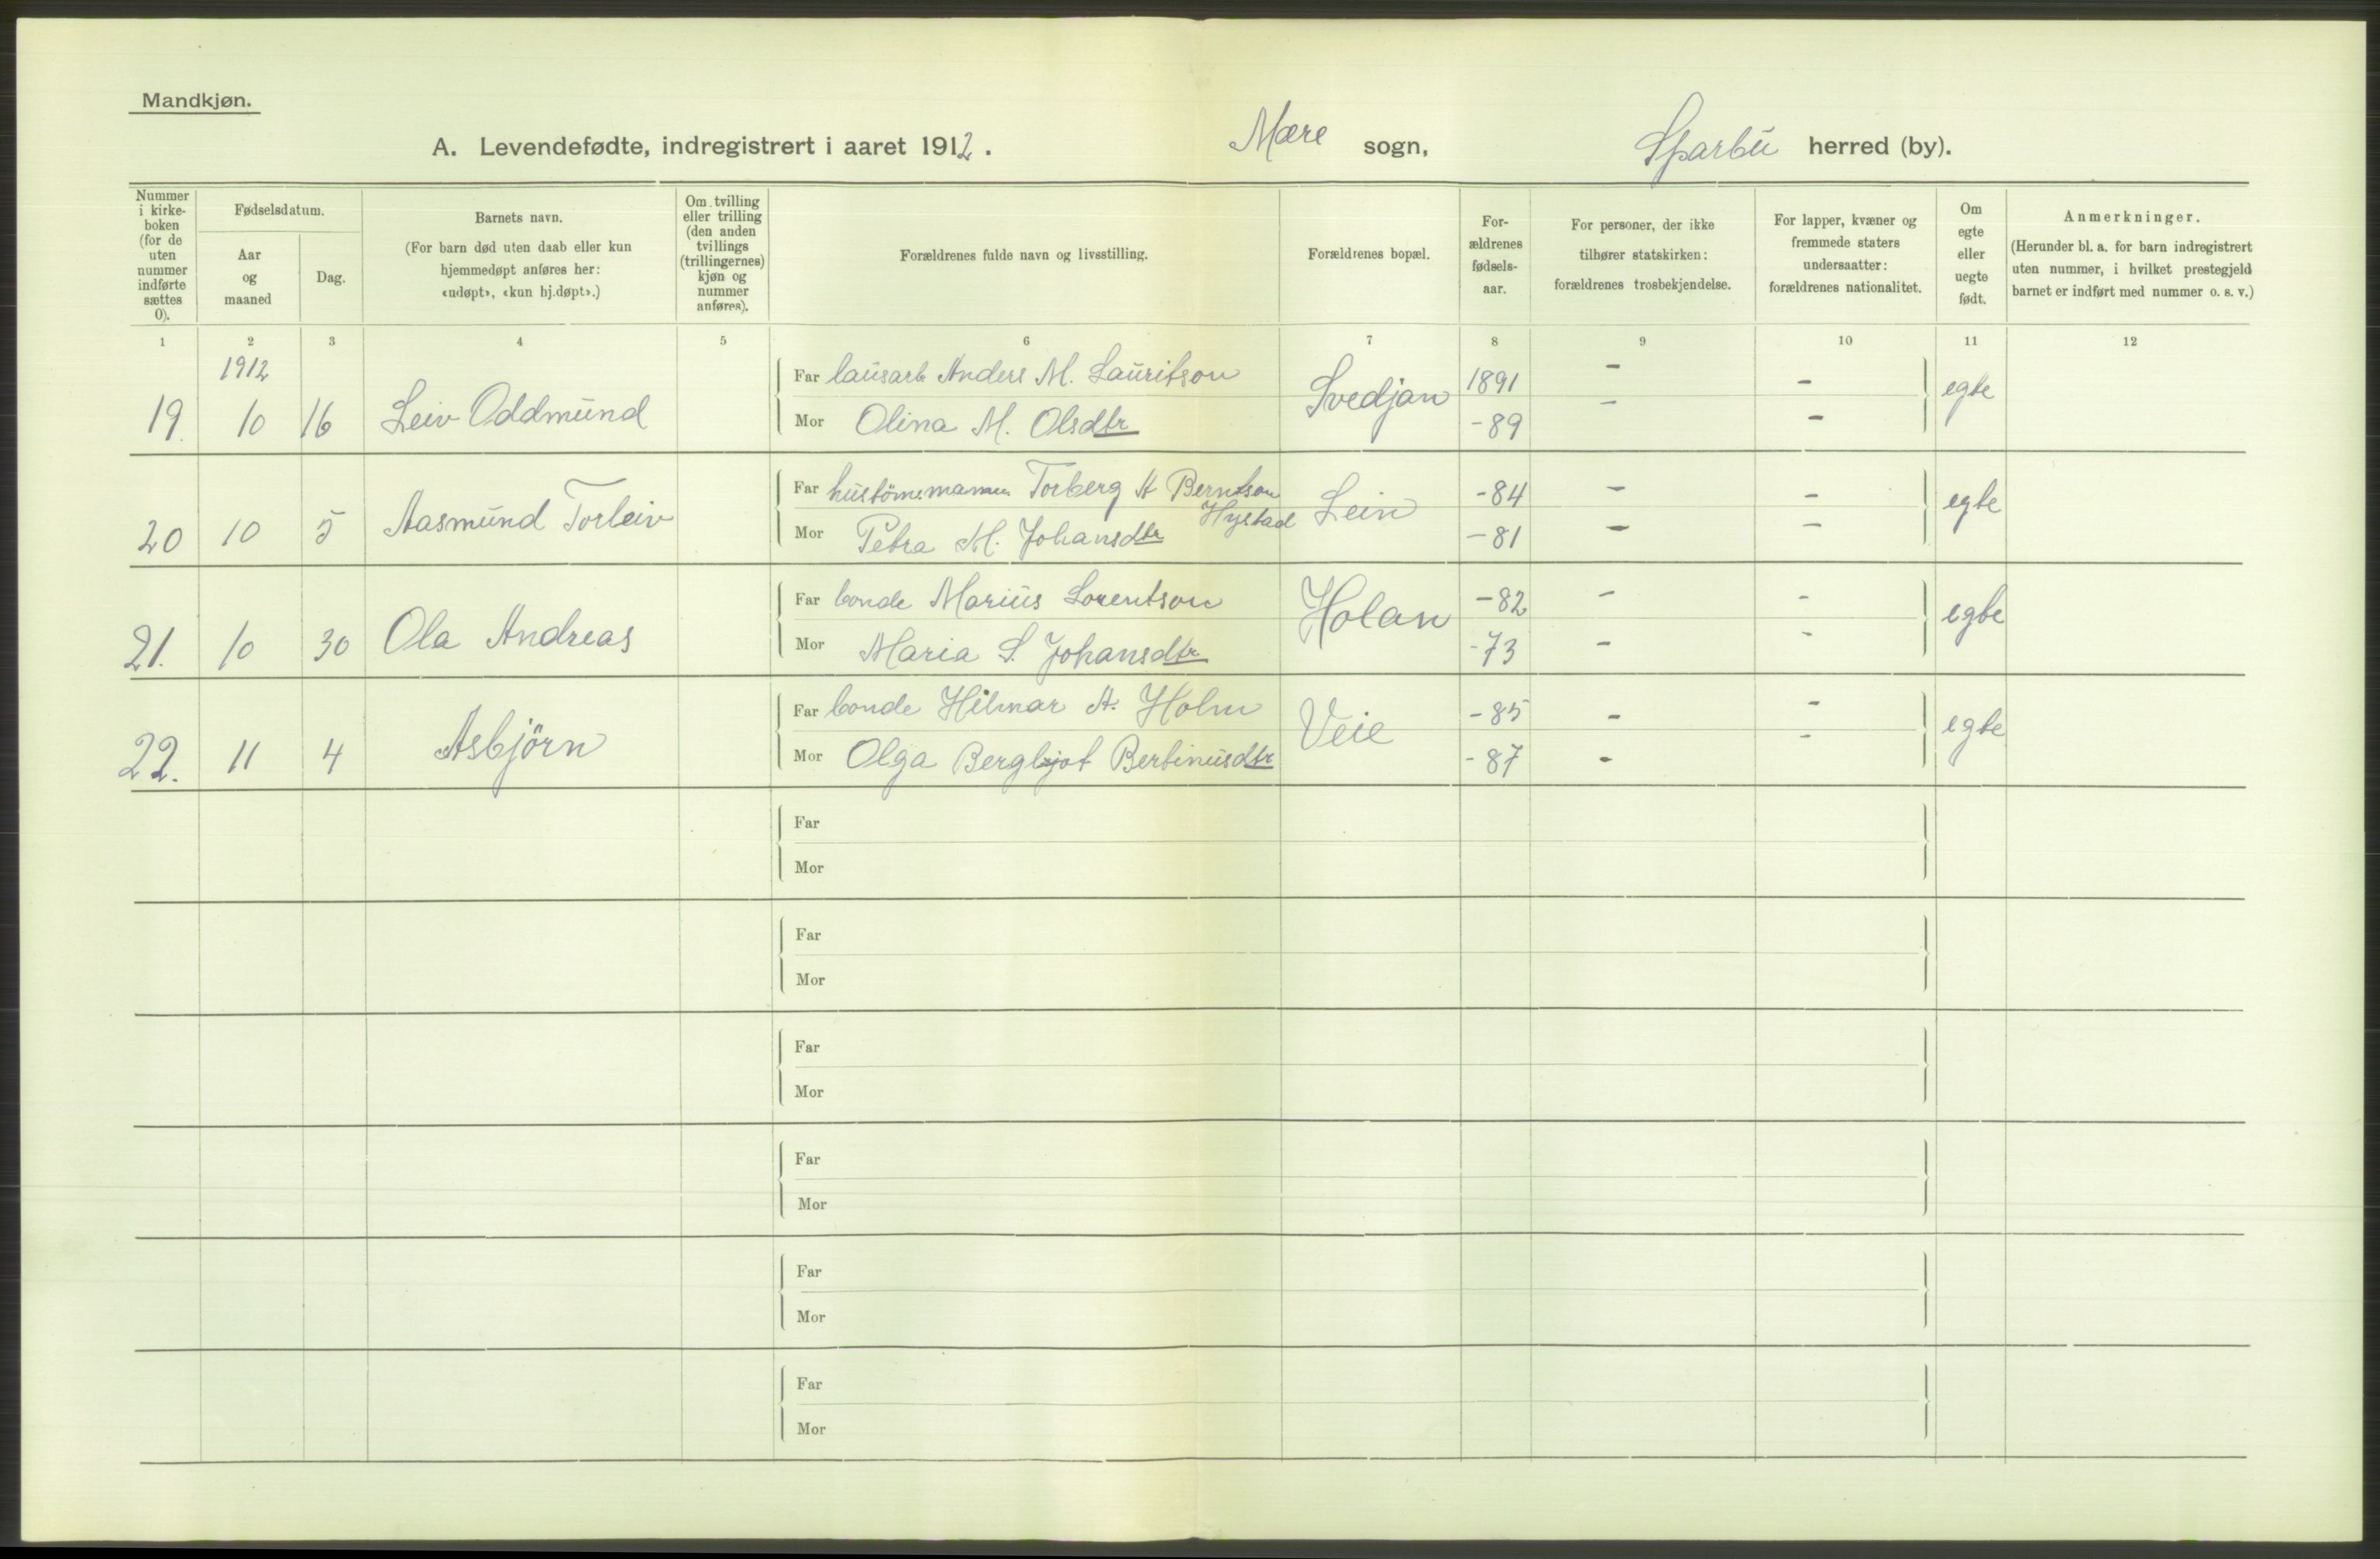 Mandkjøn.
A. Levendefødte, indregistrert i aaret 1912. Mære sogn, Sparbu herred (by).
Nummer i kirke-boken (for de uten nummer indførte sættes 0).
Fødselsdatum.
Aar og maaned
Dag.
Barnets navn.
(For barn død uten daab eller kun hjemmedøpt anføres her: «udøpt», «kun hj.døpt».)
Om tvilling eller trilling (den anden tvillings (trillingernes) kjøn og nummer anføres).
Forældrenes fulde navn og livsstilling.
Forældrenes bopæl.
For-ældrenes fødsels-aar.
For personer, der ikke tilhører statskirken: forældrenes trosbekjendelse.
For lapper, kvæner og fremmede staters undersaatter: forældrenes nationalitet.
Om egte eller uegte født.
Anmerkninger.
(Herunder bl. a. for barn indregistrert uten nummer, i hvilket prestegjeld barnet er indført med nummer o. s. v.)
1 2 3 4 5 6 7 8 9 10 11 12
1912
19. 10 16 Leiv Oddmund Far lausarb Anders M. Lauritson Svedjan 1891 - - egte
Mor Olina M. Olsdtr -89 - -
20 10 5 Aasmund Torleiv Far Torberg A Berntson Hystad Lein -84 - - egte
Mor Petra M. Johansdtr -81 - -
21. 10 30 Ola Andreas Far bonde Marius Lorentson Holan -82 - - egte
Mor Maria S. Johansdtr -73 - -
22. 11 4 Asbjörn Far bonde Hilmar A. Holm Veie -85 - - egte
Mor Olga Bergljot Bertinusdtr -87 - -
Far
Mor
Far
Mor
Far
Mor
Far
Mor
Far
Mor
Far
Mor